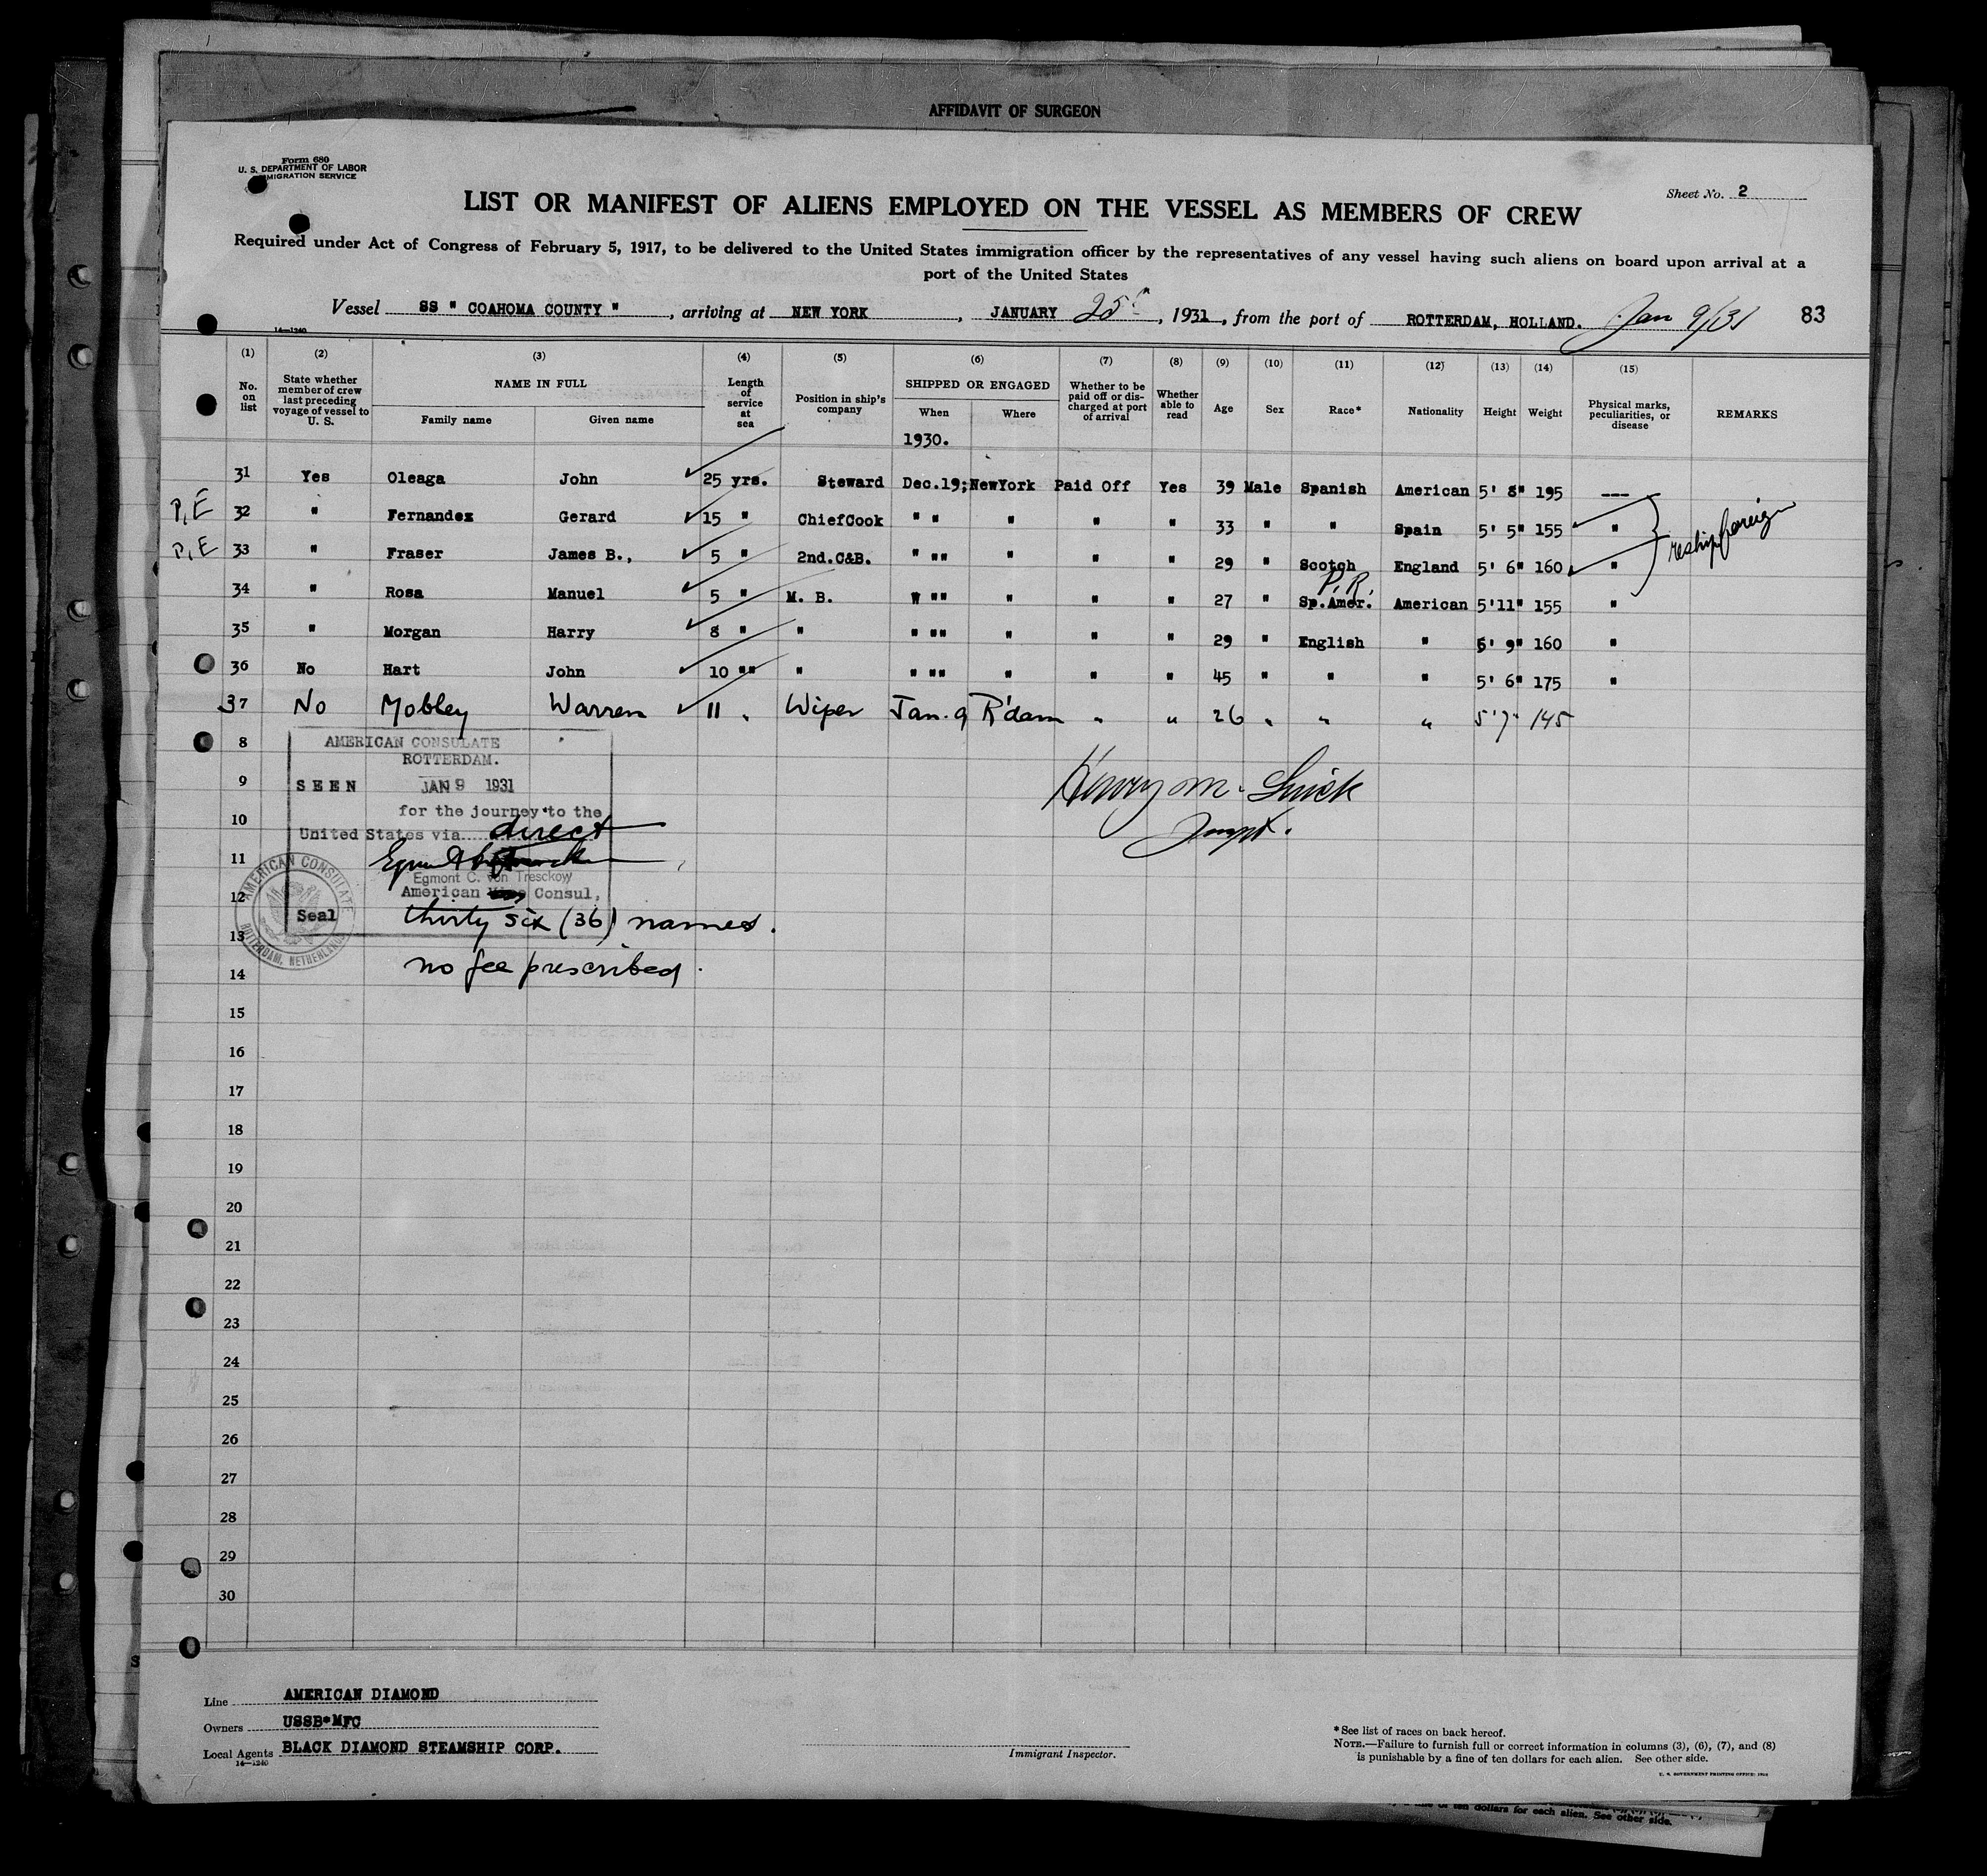 AFFIDAVIT OF SURGEON
Form 680
U. S. DEPARTMENT OF LABOR
MIGRATION SERVICE
Sheet No. 2
LIST OR MANIFEST OF ALIENS EMPLOYED ON THE VESSEL AS MEMBERS OF CREW
Required under Act of Congress of February 5, 1917, to be delivered to the United States immigration officer by the representatives of any vessel having such aliens on board upon arrival at a
port of the United States
Vessel SS " COAHOMA COUNTY ", arriving at NEW YORK, JANUARY 25th, 1931, from the port of ROTTERDAM, HOLLAND. Jan 9/31 83
14—1240
(1) (2) (3) (4) (5) (6) (7) (8) (9) (10) (11) (12) (13) (14) (15)
No. on list
State whether member of crew last preceding voyage of vessel to U. S.
NAME IN FULL
Family name
Given name
Length of service at sea
Position in ship's company
SHIPPED OR ENGAGED
When
Where
Whether to be paid off or discharged at port of arrival
Whether able to read
Age
Sex
Race*
Nationality
Height
Weight
Physical marks, peculiarities, or disease
REMARKS
1930.
31 Yes Oleaga John 25 yrs. Steward Dec.19; NewYork Paid Off Yes 39 Male Spanish American 5' 8" 195 ---
P,E 32 " Fernandez Gerard 15 " ChiefCook " " " " " 33 " " Spain 5' 5" 155 "
P,E 33 " Fraser James B., 5 " 2nd.C&B. " "" " " " 29 " Scotch England 5' 6" 160 "
reship foreign
P.R.
34 " Rosa Manuel 5 " M. B. " "" " " " 27 " Sp.Amer. American 5'11" 155 "
35 " Morgan Harry 8 " " " "" " " " 29 " English " 5' 9" 160 "
36 No Hart John 10 "" " " "" " " " 45 " " " 5' 6" 175 "
37 No Mobley Warren 11 " Wiper Jan. 9 R'dam " " 26 " " " 5'7" 145
8
AMERICAN CONSULATE
ROTTERDAM.
9
SEEN JAN 9 1931
for the journey to the
10
United States via direct
11
Egmont C. von Tresckow
12
American Vice Consul,
Seal
AMERICAN CONSULATE
ROTTERDAM, NETHERLANDS
thirty six (36) names.
13
no fee prescribed.
14
Henry M.
15
16
17
18
19
20
21
22
23
24
25
26
27
28
29
30
Line AMERICAN DIAMOND
Owners USSB*MFC
Local Agents BLACK DIAMOND STEAMSHIP CORP.
14—1240
Immigrant Inspector.
*See list of races on back hereof.
NOTE.—Failure to furnish full or correct information in columns (3), (6), (7), and (8)
is punishable by a fine of ten dollars for each alien. See other side.
U. S. GOVERNMENT PRINTING OFFICE:
ten dollars for each alien. See other side.